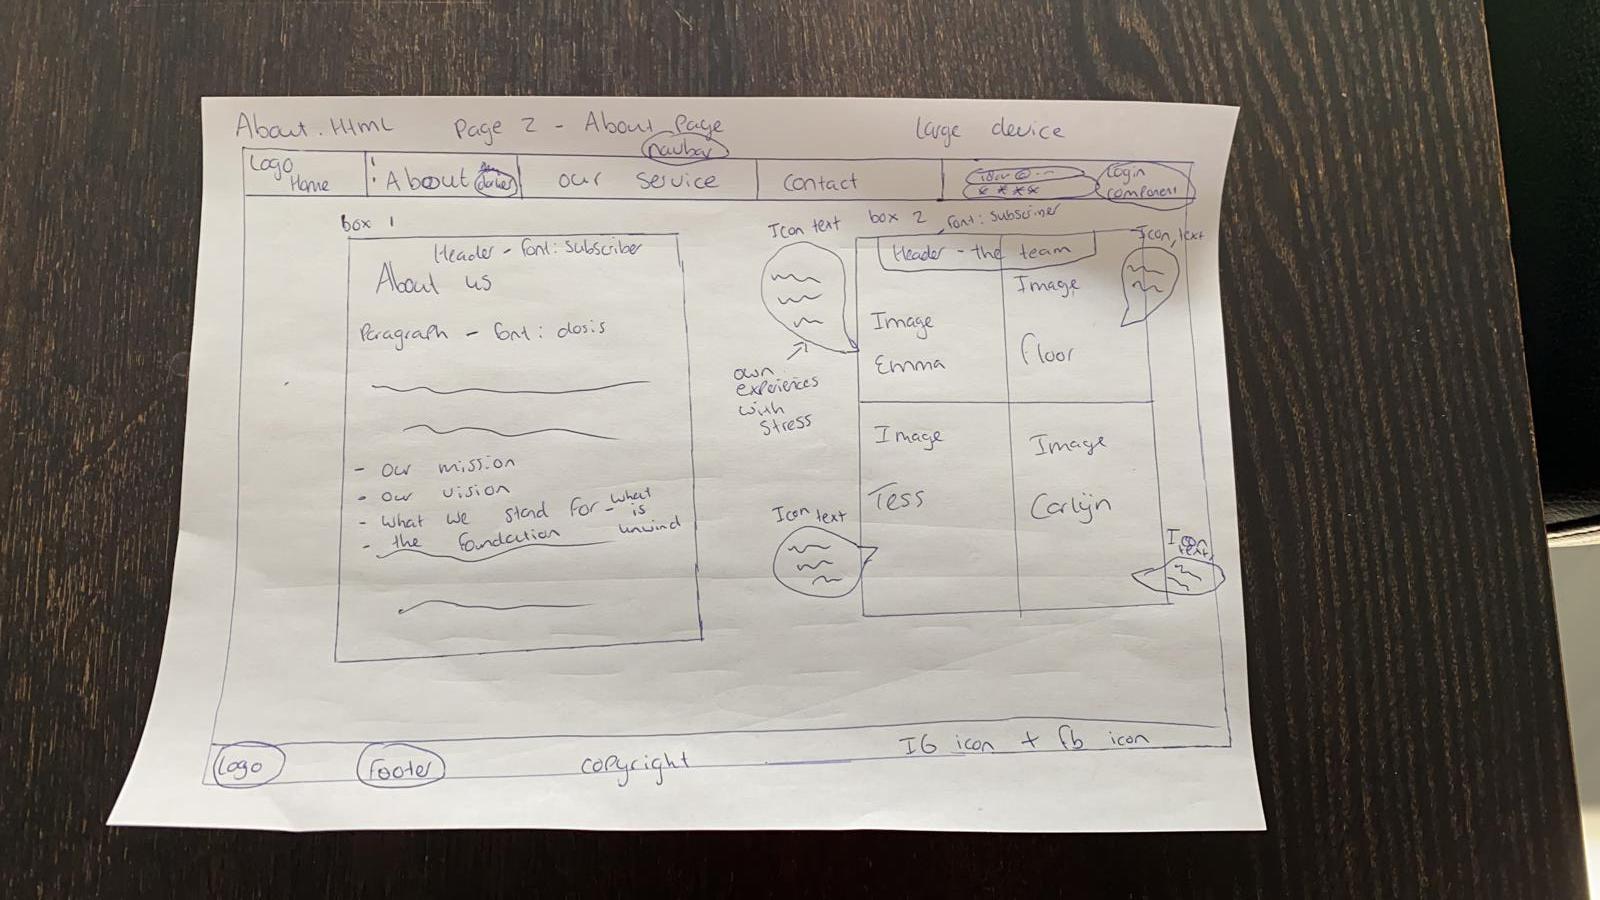 About.HTML Page 2 - About Page large device
navbar
Logo
Home
About darker
our service
contact
****
Login
component
box 1
Header - font: subscriber
About us
Paragraph - font: dosis
- our mission
- our vision
- what we stand for - what is unwind
- the foundation
Icon text
own
experiences
with
stress
box 2 font: subscriner
Header - the team
Icon, text
Image
Emma
Image
floor
Image
Tess
Image
Carlijn
Icon text
Icon
text,
Logo
footer
copyright
IG icon + fb icon